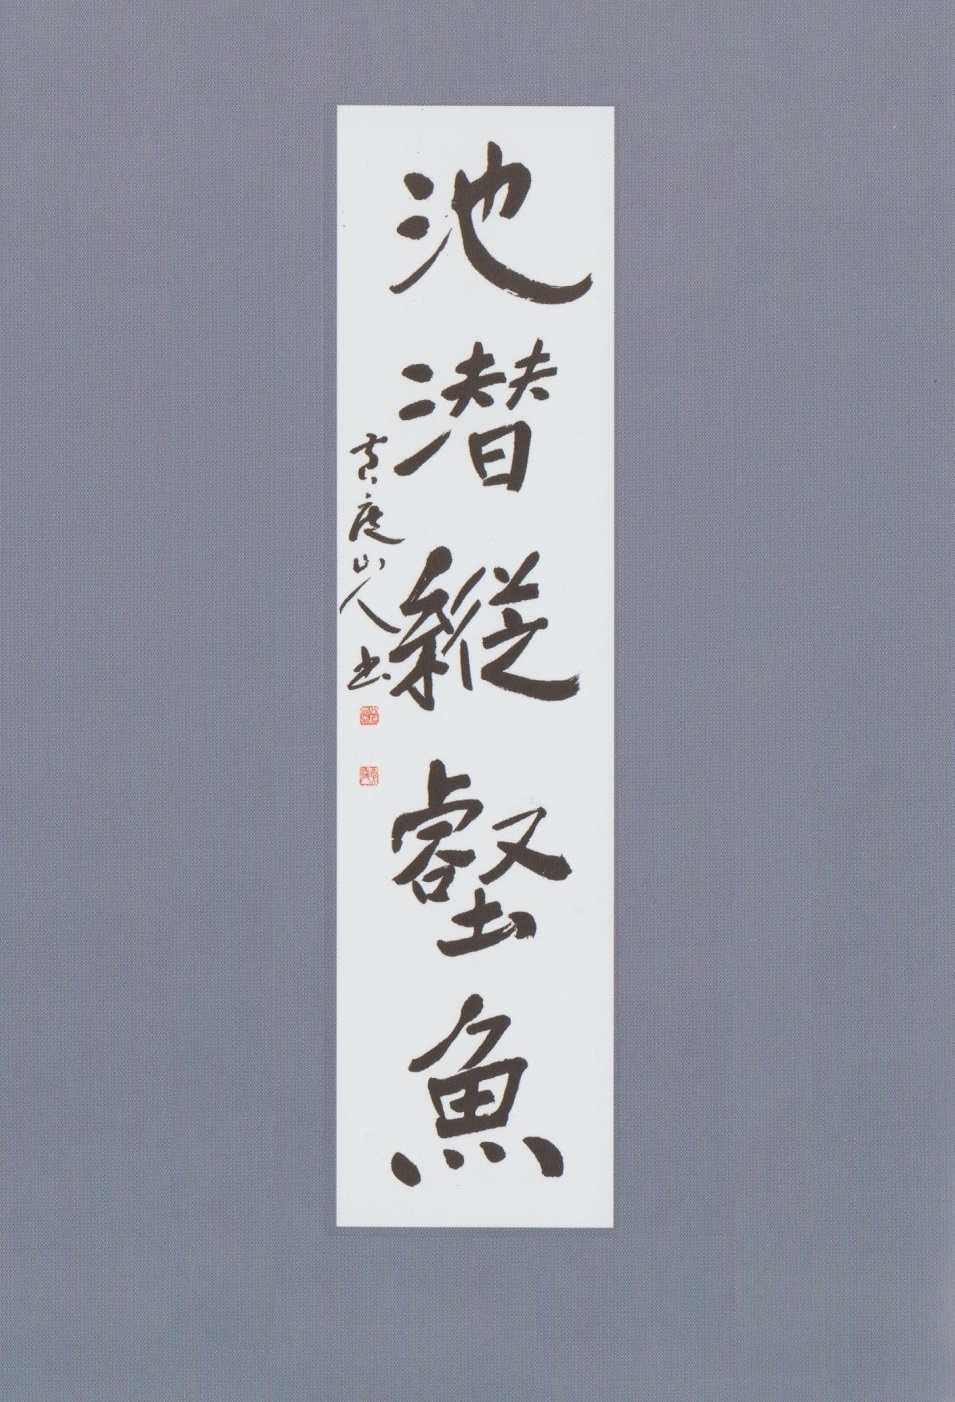 池潜縦壑魚
山人書